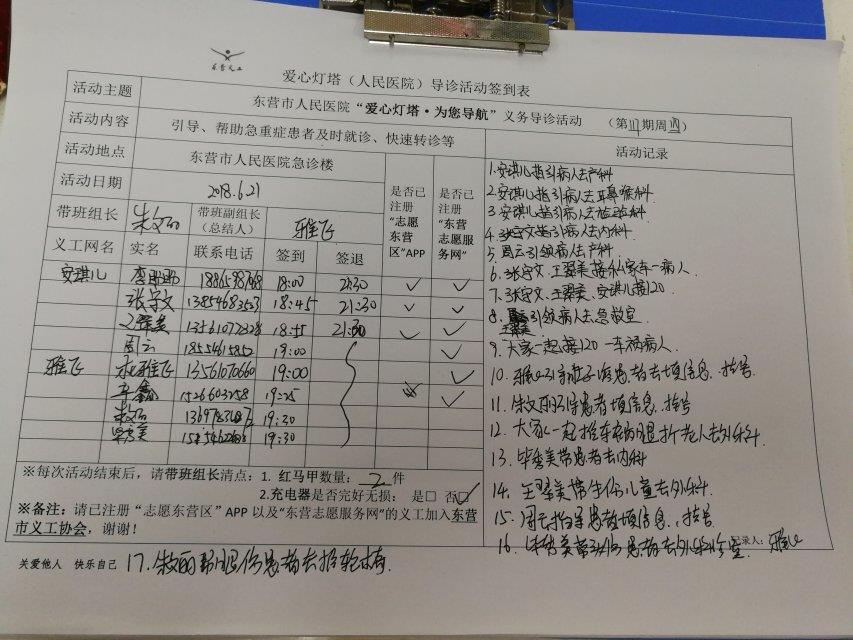 东营义工
爱心灯塔（人民医院）导诊活动签到表
活动主题 东营市人民医院“爱心灯塔·为您导航”义务导诊活动 （第117期周四）
活动内容 引导、帮助急重症患者及时就诊、快速转诊等
活动地点 东营市人民医院急诊楼
活动日期 2018.6.21
是否已注册“志愿东营区”APP
是否已注册“东营志愿服务网”
带班组长 带班副组长（总结人） 雅飞
义工网名 实名 联系电话 签到 签退
安琪儿 18:00 21:30
张守文 18:45 21:30
王翠美 18:55 21:30
周云 19:00
雅飞 13561070660 19:00
19:30
毕秀美 19:30
※每次活动结束后，请带班组长清点：1. 红马甲数量：2件
2.充电器是否完好无损： 是□ 否□
※备注：请已注册“志愿东营区”APP 以及“东营志愿服务网”的义工加入东营市义工协会，谢谢！
活动记录
1.安琪儿指引病人去产科
2.安琪儿指引病人去耳鼻喉科
3.安琪儿指引病人去检验科
4.张守文指引病人去内科
5.周云引领病人去产科
6.张守文、王翠美接私家车一病人
7.张守文、王翠美、安琪儿接120
8.王翠美引领病人去急救室
9.大家一起接120一车祸病人
10.患者去填信息、挂号
11.患者填信息、挂号
12.大家一起推车祸腿折老人去外科
13.毕秀美带患者去内科
14.王翠美带生伤儿童去外科
15.周云指导患者填信息、挂号
16.毕秀美带患者去外科诊室 记录人：雅飞
关爱他人 快乐自己 17.帮腿伤患者去推轮椅